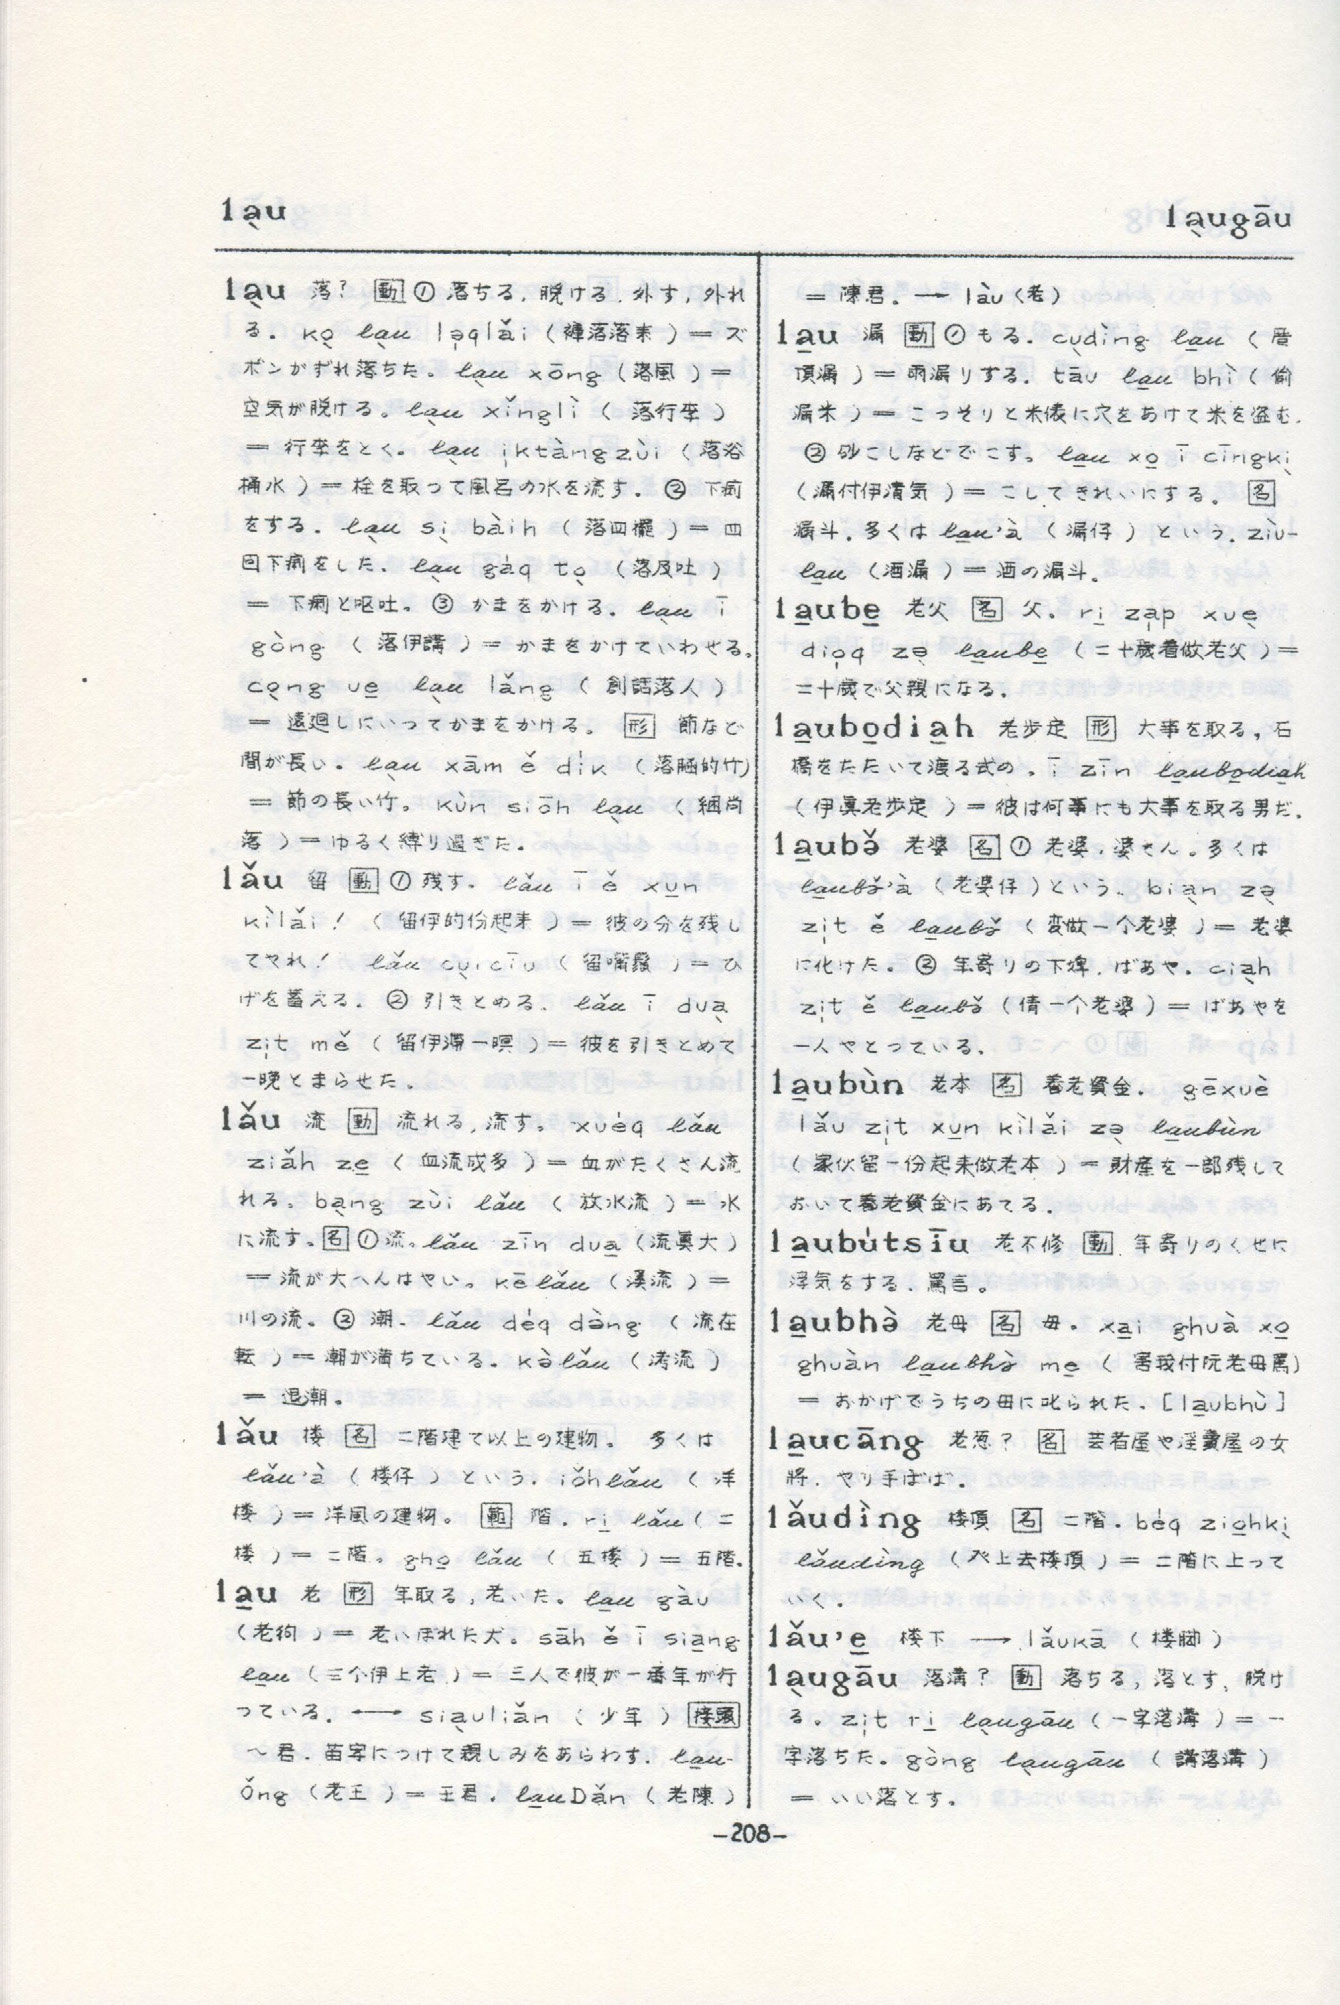 lạu
lạugāu
lạu 落? 動 ① 落ちる, 脱ける. 外す, 外れ
る. kọ lạu lə̣qlǎi (褲落落来) = ズ
ボンがずれ落ちた。lạu xōng (落風) =
空気が脱ける。lạu xǐnglì (落行李)
= 行李をとく。lạu ịktàngzùi (落浴
桶水) = 栓を取って風呂の水を流す. ② 下痢
をする. lạu sị bàih (落四擺) = 四
回下痢をした. lạu gáq tọ (落及吐)
= 下痢と呕吐。③ かまをかける. lạu ī
gòng (落伊講) = かまをかけていわせる.
cọng ue̱ lạu lǎng (創話落人)
= 遠廻しにいってかまをかける。 形 節など
間が長い. lạu xām ě dík (落的竹)
= 節の長い竹。kùn siōh lạu (綑尚
落) = ゆるく縛り過ぎた.
lǎu 留 動 ① 残す. lǎu ī ě xu̱n
kìlǎi! (留伊的份起来) = 彼の分を残し
てやれ! lǎu cụicīu (留嘴鬚) = ひ
げを蓄える. ② 引きとめる. lǎu ī dua̱
zịt mě (留伊滞一暝) = 彼を引きとめて
一晩とまらせた.
lǎu 流 動 流れる, 流す。xuéq lǎu
ziǎh ze̱ (血流成多) = 血がたくさん流
れる. bạng zùi lǎu (放水流) = 水
に流す。名 ① 流. lǎu zīn dua̱ (流眞大)
= 流が大へんはやい。kēlǎu (溪流) =
川の流. ② 潮. lǎu déq də̀ng (流在
転) = 潮が満ちている. kə̀lǎu (洘流)
= 退潮.
lǎu 楼 名 二階建て以上の建物. 多くは
lǎu'à (楼仔) という. iǒhlǎu (洋
楼) = 洋風の建物。 範 階. ri̱ lǎu (二
楼) = 二階。gho̱ lǎu (五楼) = 五階.
la̱u 老 形 年取る, 老いた。la̱u gàu
(老狗) = 老いぼれた犬。sāh ě ī sia̱ng
la̱u (三个伊上老) = 三人で彼が一番年が行
っている. ←→ siạuliǎn (少年) 接頭
～君. 苗字につけて親しみをあらわす. la̱u-
ǒng (老王) = 王君. la̱uDǎn (老陳)
= 陳君. → làu (老)
la̱u 漏 動 ① もる. cụdìng la̱u (厝
頂漏) = 雨漏りする. tāu la̱u bhì (偷
漏米) = こっそりと米俵に穴をあけて米を盗む.
② 砂こしなどでこす。la̱u xo̱ ī cīngkị
(漏付伊清気) = こしてきれいにする。 名
漏斗. 多くは la̱u'à (漏仔) という. zìu-
la̱u (酒漏) = 酒の漏斗.
la̱ube̱ 老父 名 父. ri̱ zạp xuẹ
diọq zə̣ la̱ube̱ (二十歳着做老父) =
二十歳で父親になる.
la̱ubo̱dia̱h 老步定 形 大事を取る, 石
橋をたたいて渡る式の. ī zīn la̱ubo̱dia̱h
(伊眞老步定) = 彼は何事にも大事を取る男だ.
la̱ubə̌ 老婆 名 ① 老婆, 婆さん. 多くは
la̱ubə̌'à (老婆仔) という. biạn zə̣
zịt ě la̱ubə̌ (変做一个老婆) = 老婆
に化けた。② 年寄りの下婢. ばあや. ciạh
zịt ě la̱ubə̌ (倩一个老婆) = ばあやを
一人やとっている.
la̱ubùn 老本 名 養老資金. gēxuè
lǎu zịt xu̱n kìlǎi zə̣ la̱ubùn
(家伙留一份起来做老本) = 財産を一部残して
おいて養老資金にあてる.
la̱ubútsīu 老不修 動 年寄りのくせに
浮気をする. 罵言。
la̱ubhə̀ 老母 名 母. xa̱i ghuà xo̱
ghuàn la̱ubhə̀ mẹ (害我付阮老母罵)
= おかげでうちの母に叱られた. [la̱ubhù]
la̱ucāng 老怱? 名 芸者屋や淫賣屋の女
將. やり手ばば.
lǎudìng 楼頂 名 二階. béq zio̱hkị
lǎudìng (上去楼頂) = 二階に上って
いく.
lǎu'e̱ 楼下 → lǎukā (楼脚)
lạugāu 落溝? 動 落ちる, 落とす, 脱け
る. zịt ri̱ lạugāu (一字落溝) = 一
字落ちた。gòng lạugāu (講落溝)
= いい落とす.
-208-